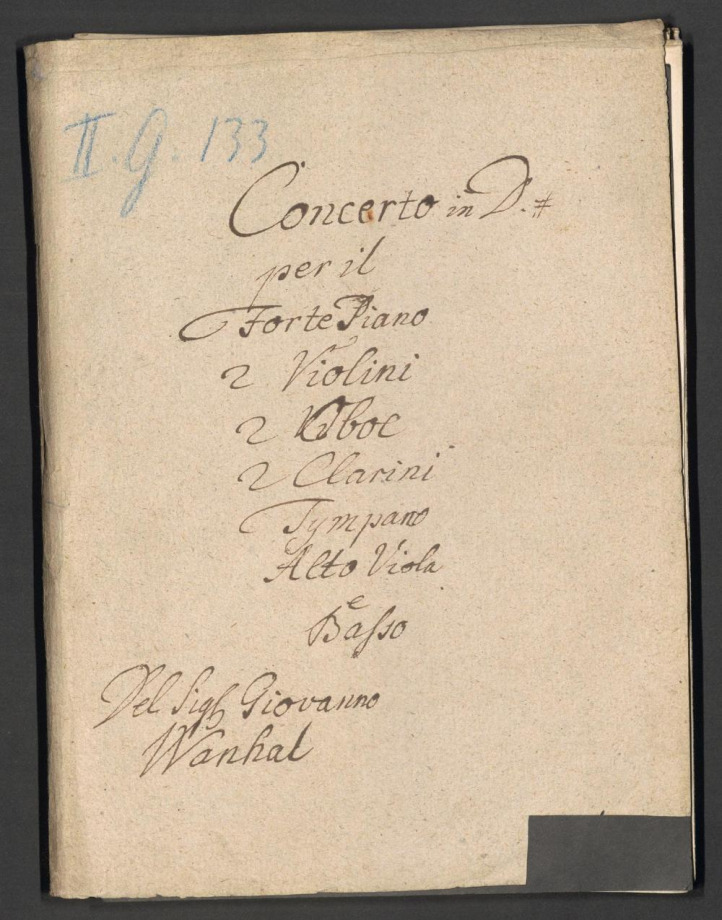 II. G. 133
Concerto in D.#
per il
Forte Piano
2 Violini
2 Oboe
2 Clarini
Tympano
Alto Viola
e
Basso
Del Sigl Giovanno
Wanhal